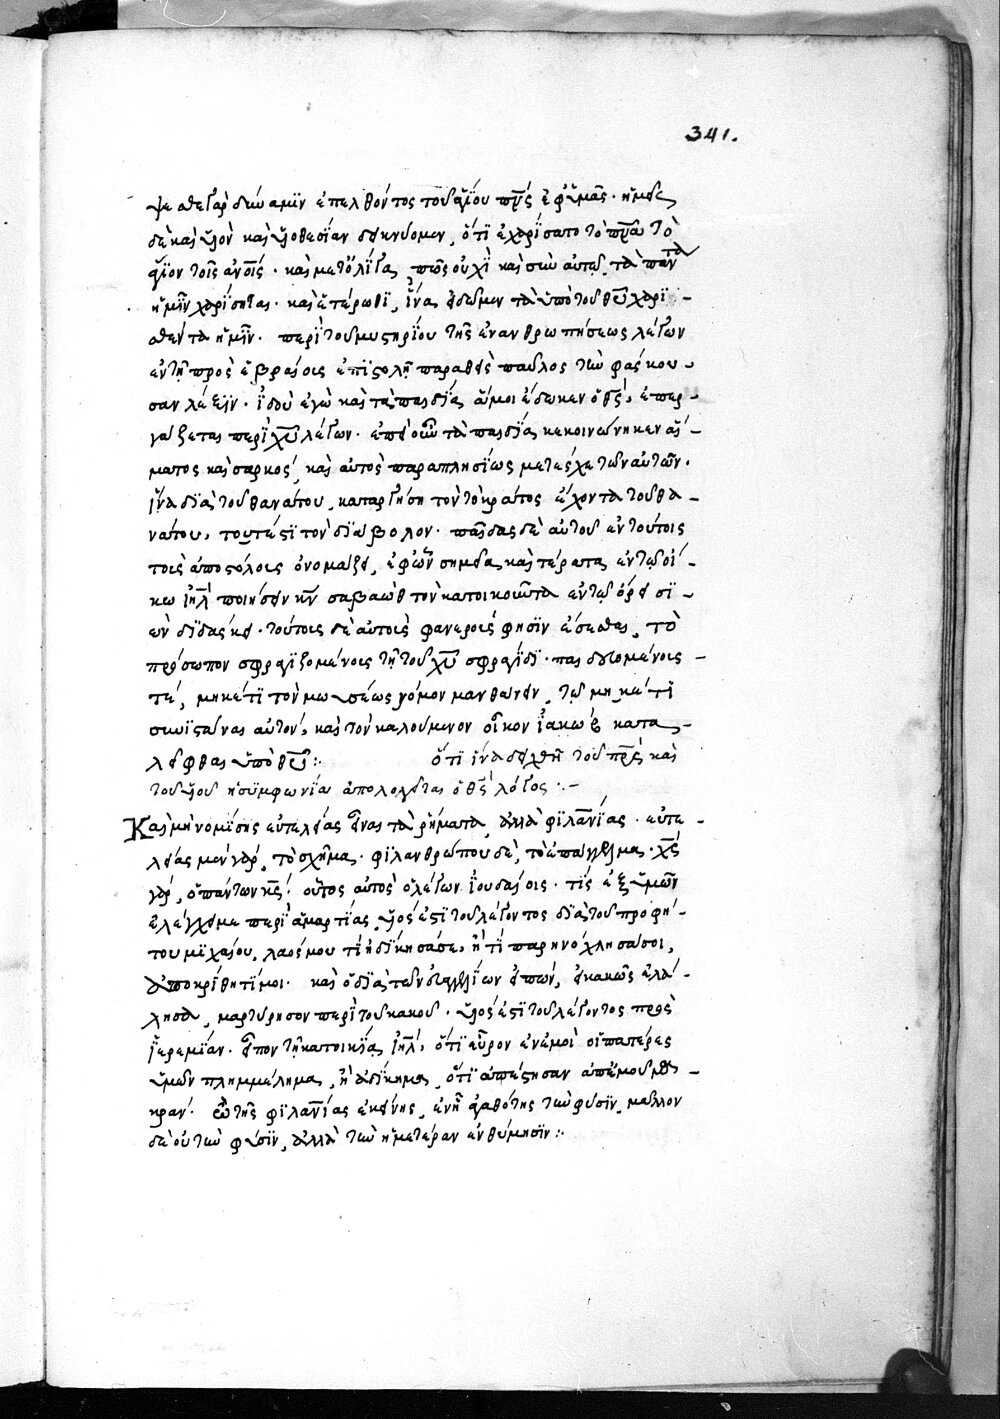 341.
ψεσθε γὰρ δύναμιν ἐπελθόντος τοῦ ἁγίου πνς ἐφ' ὑμᾶς· ἡμεῖς
δὲ καὶ υἱὸν καὶ υἱοθεσίαν δεικνύομεν, ὅτι ἐχαρίσατο τὸ πνᾶ τὸ
ἅγιον τοῖς ἀνοις· καὶ μετ' ὀλίγα, πῶς οὐχὶ καὶ σὺν αὐτῷ τὰ πάντα
ἡμῖν χαρίσηται· καὶ ἑτέρωθι, ἵνα εἰδῶμεν τὰ ὑπὸ τοῦ θυ χαρι-
σθέντα ἡμῖν· περὶ τοῦ μυστηρίου τῆς ἐνανθρωπήσεως λέγων
ἐν τῇ πρὸς ἑβραίους ἐπιστολῇ παραθεὶς παῦλος τὴν φάσκου-
σαν λέξιν· ἰδοὺ ἐγὼ καὶ τὰ παιδία, ἅ μοι ἔδωκεν ὁ θς, ἐπερ-
γάζεται περὶ χυ λέγων· ἐπεὶ οὖν τὰ παιδία κεκοινώνηκεν αἵ-
ματος καὶ σαρκός, καὶ αὐτὸς παραπλησίως μετέσχε τῶν αὐτῶν·
ἵνα διὰ τοῦ θανάτου, καταργήσῃ τὸν τὸ κράτος ἔχοντα τοῦ θα-
νάτου, τουτέστι τὸν διάβολον· παῖδας δὲ αὐτοῦ ἐν τούτοις
τοὺς ἀποστόλους ὀνομάζει, ἐφ' ὧν σημεῖα καὶ τέρατα ἐν τῷ οἴ-
κῳ ιηλ ποιήσειν κν σαβαὼθ τὸν κατοικοῦντα ἐν τῷ ὄρει σι-
ὼν διδάσκει· τούτοις δὲ αὐτοὺς φανεροὺς φησὶν ἔσεσθαι, τὸ
πρόσωπον σφραγιζομένοις τῇ τοῦ χυ σφραγῖδι· παιδευομένοις
τέ, μηκέτι τὸν μωυσέως νόμον μανθάνειν, τῷ μηκέτι
συνίσταναι αὐτὸν, καὶ τὸν καλούμενον οἶκον ἰακώβ κατα-
λειφθαι ὑπὸ θυ:· ὅτι ἵνα δειχθῇ τοῦ πρς καὶ
τοῦ υἱοῦ ἡ συμφωνία ἀπολογεῖται ὁ θς λόγος:-
Καὶ μὴ νομίσῃς εὐτελείας εἶναι τὰ ῥήματα, ἀλλὰ φιλανίας· εὐτε-
λείας μὲν γὰρ, τὸ σχῆμα· φιλανθρώπου δὲ, τὸ ἐπάγγελμα· χς
γὰρ, ὁ πάντων κς· οὗτος αὐτὸς ὁ λέγων ἰουδαίοις· τίς ἐξ ὑμῶν
ἐλέγχει με περὶ ἁμαρτίας, υἱός ἐστι τοῦ λέγοντος διὰ τοῦ προφή-
του μιχαίου, λαός μου τί ἠδίκησά σε, ἢ τί παρηνόχλησά σοι,
ἀποκρίθητί μοι· καὶ ὁ διὰ τῶν εὐαγγελίων εἰπών, εἰ κακῶς ἐλά-
λησα, μαρτύρησον περὶ τοῦ κακοῦ· υἱός ἐστι τοῦ λέγοντος πρὸς
ἱερεμίαν· εἶπον τῇ κατοικίᾳ ιηλ, ὅτι εὗρον ἐν ἐμοὶ οἱ πατέρες
ὑμῶν πλημμέλημα, ἢ ἀδίκημα, ὅτι ἀπέστησαν ἀπ' ἐμοῦ μα-
κράν· ὢ τῆς φιλανίας ἐκείνης, ἐν ᾗ ἀγαθότης τὴν φύσιν, μᾶλλον
δὲ οὐ τὴν φύσιν, ἀλλὰ τὴν ἡμετέραν ἐνθύμησιν:·